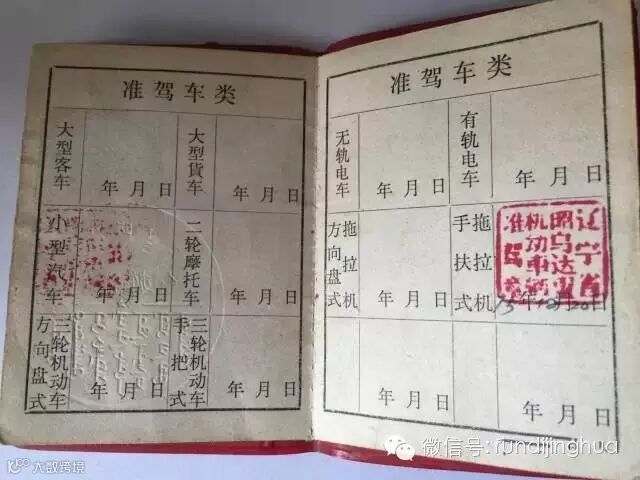 准驾车类
大型客车
年月日
大型貨车
年月日
小型汽车
年月日
二轮摩托车
年月日
三轮机动车
方向盘式
年月日
三轮机动车
手把式
年月日
准驾车类
无轨电车
年月日
有轨电车
年月日
拖拉机
方向盘式
年月日
拖拉机
手扶式
辽宁省
昭乌达盟
机动车
年月日
年月日
年月日
微信号: rundijinghua
大数跨境